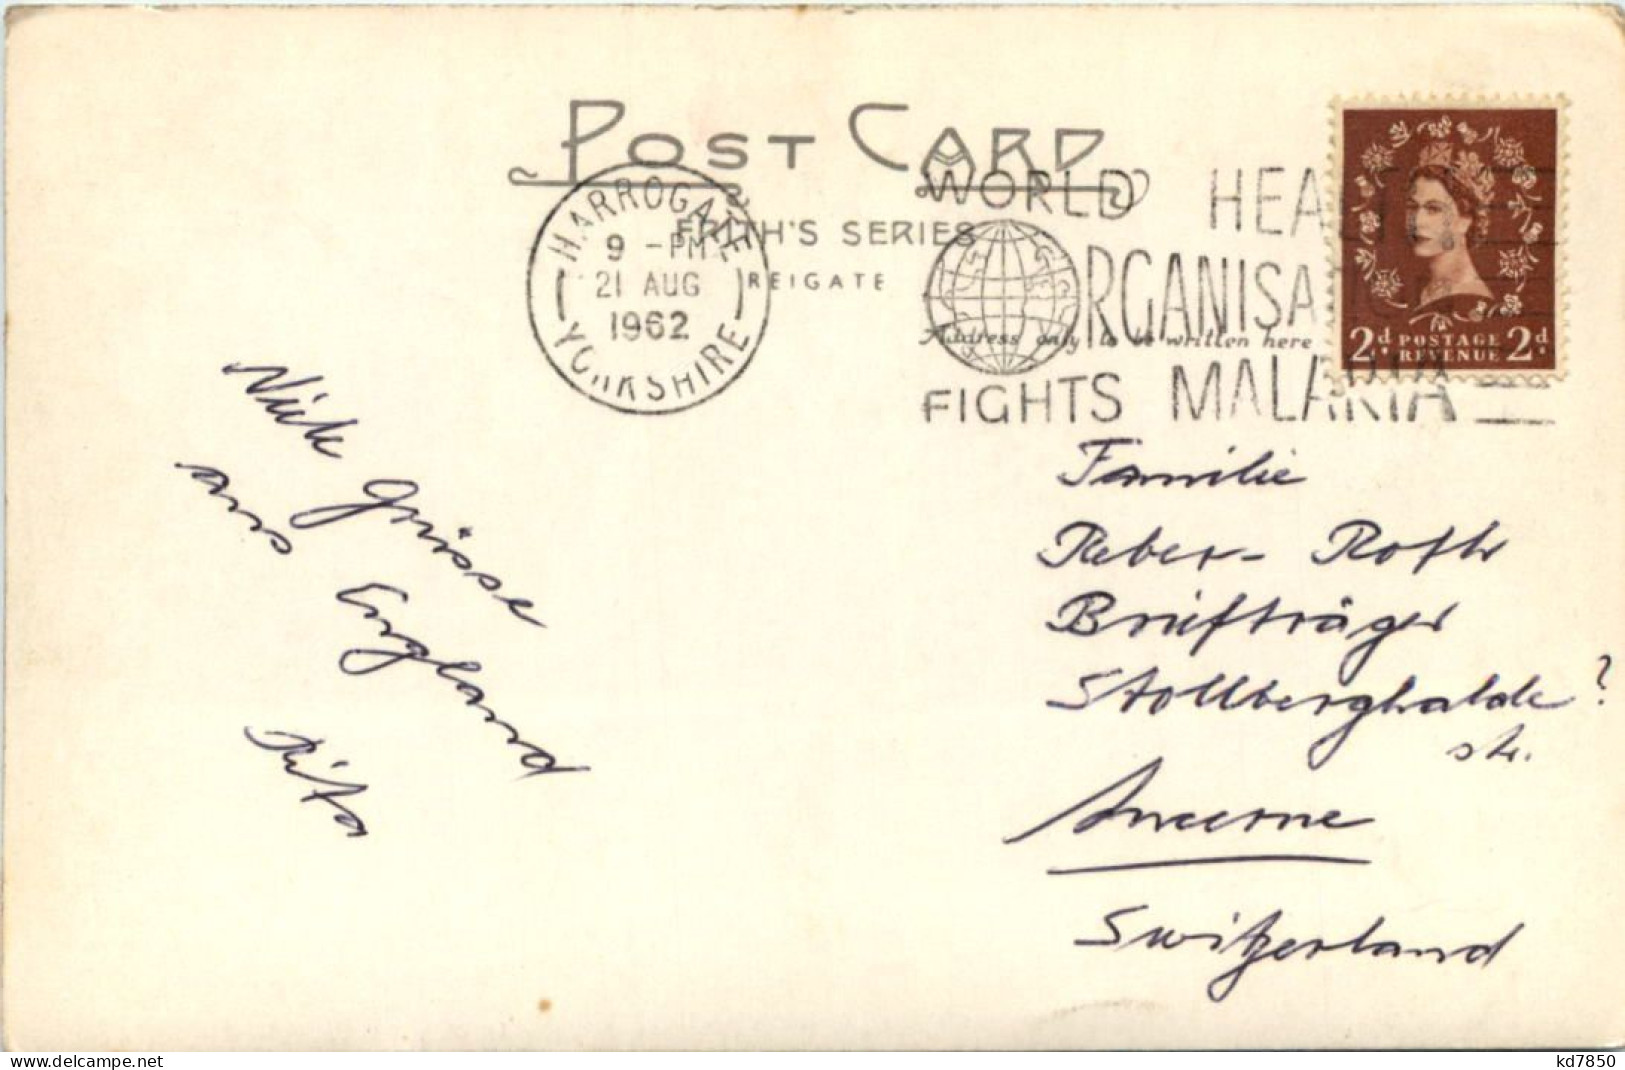 POST CARD
FRITH'S SERIES
REIGATE
HARROGATE
9 - PM
21 AUG
1962
YORKSHIRE
WORLD HEALTH
ORGANISA
FIGHTS MALARIA
Address only to be written here
2d. POSTAGE REVENUE 2d.
Grüsse
aus England
Rita
Familie
Reber - Roth
Briefträger
Stollberghalde?
str.
Luzerne
Switzerland
www.delcampe.net
kd7850